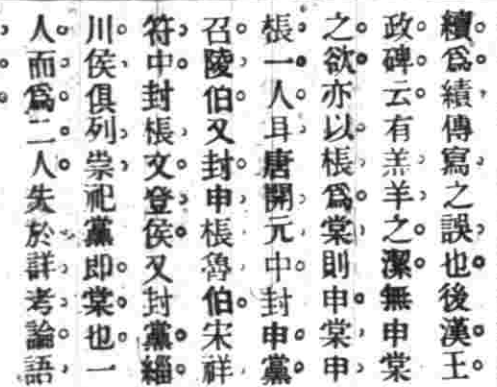 續爲績傳寫之誤也後漢王
政碑云有羔羊之潔無申棠
之欲亦以棖爲棠則申棠申
棖一人耳唐開元中封申黨
召陵伯又封申棖魯伯宋祥
符中封棖文登侯又封黨緇
川侯俱列崇祀黨即棠也一
人而爲二人失於詳考論語